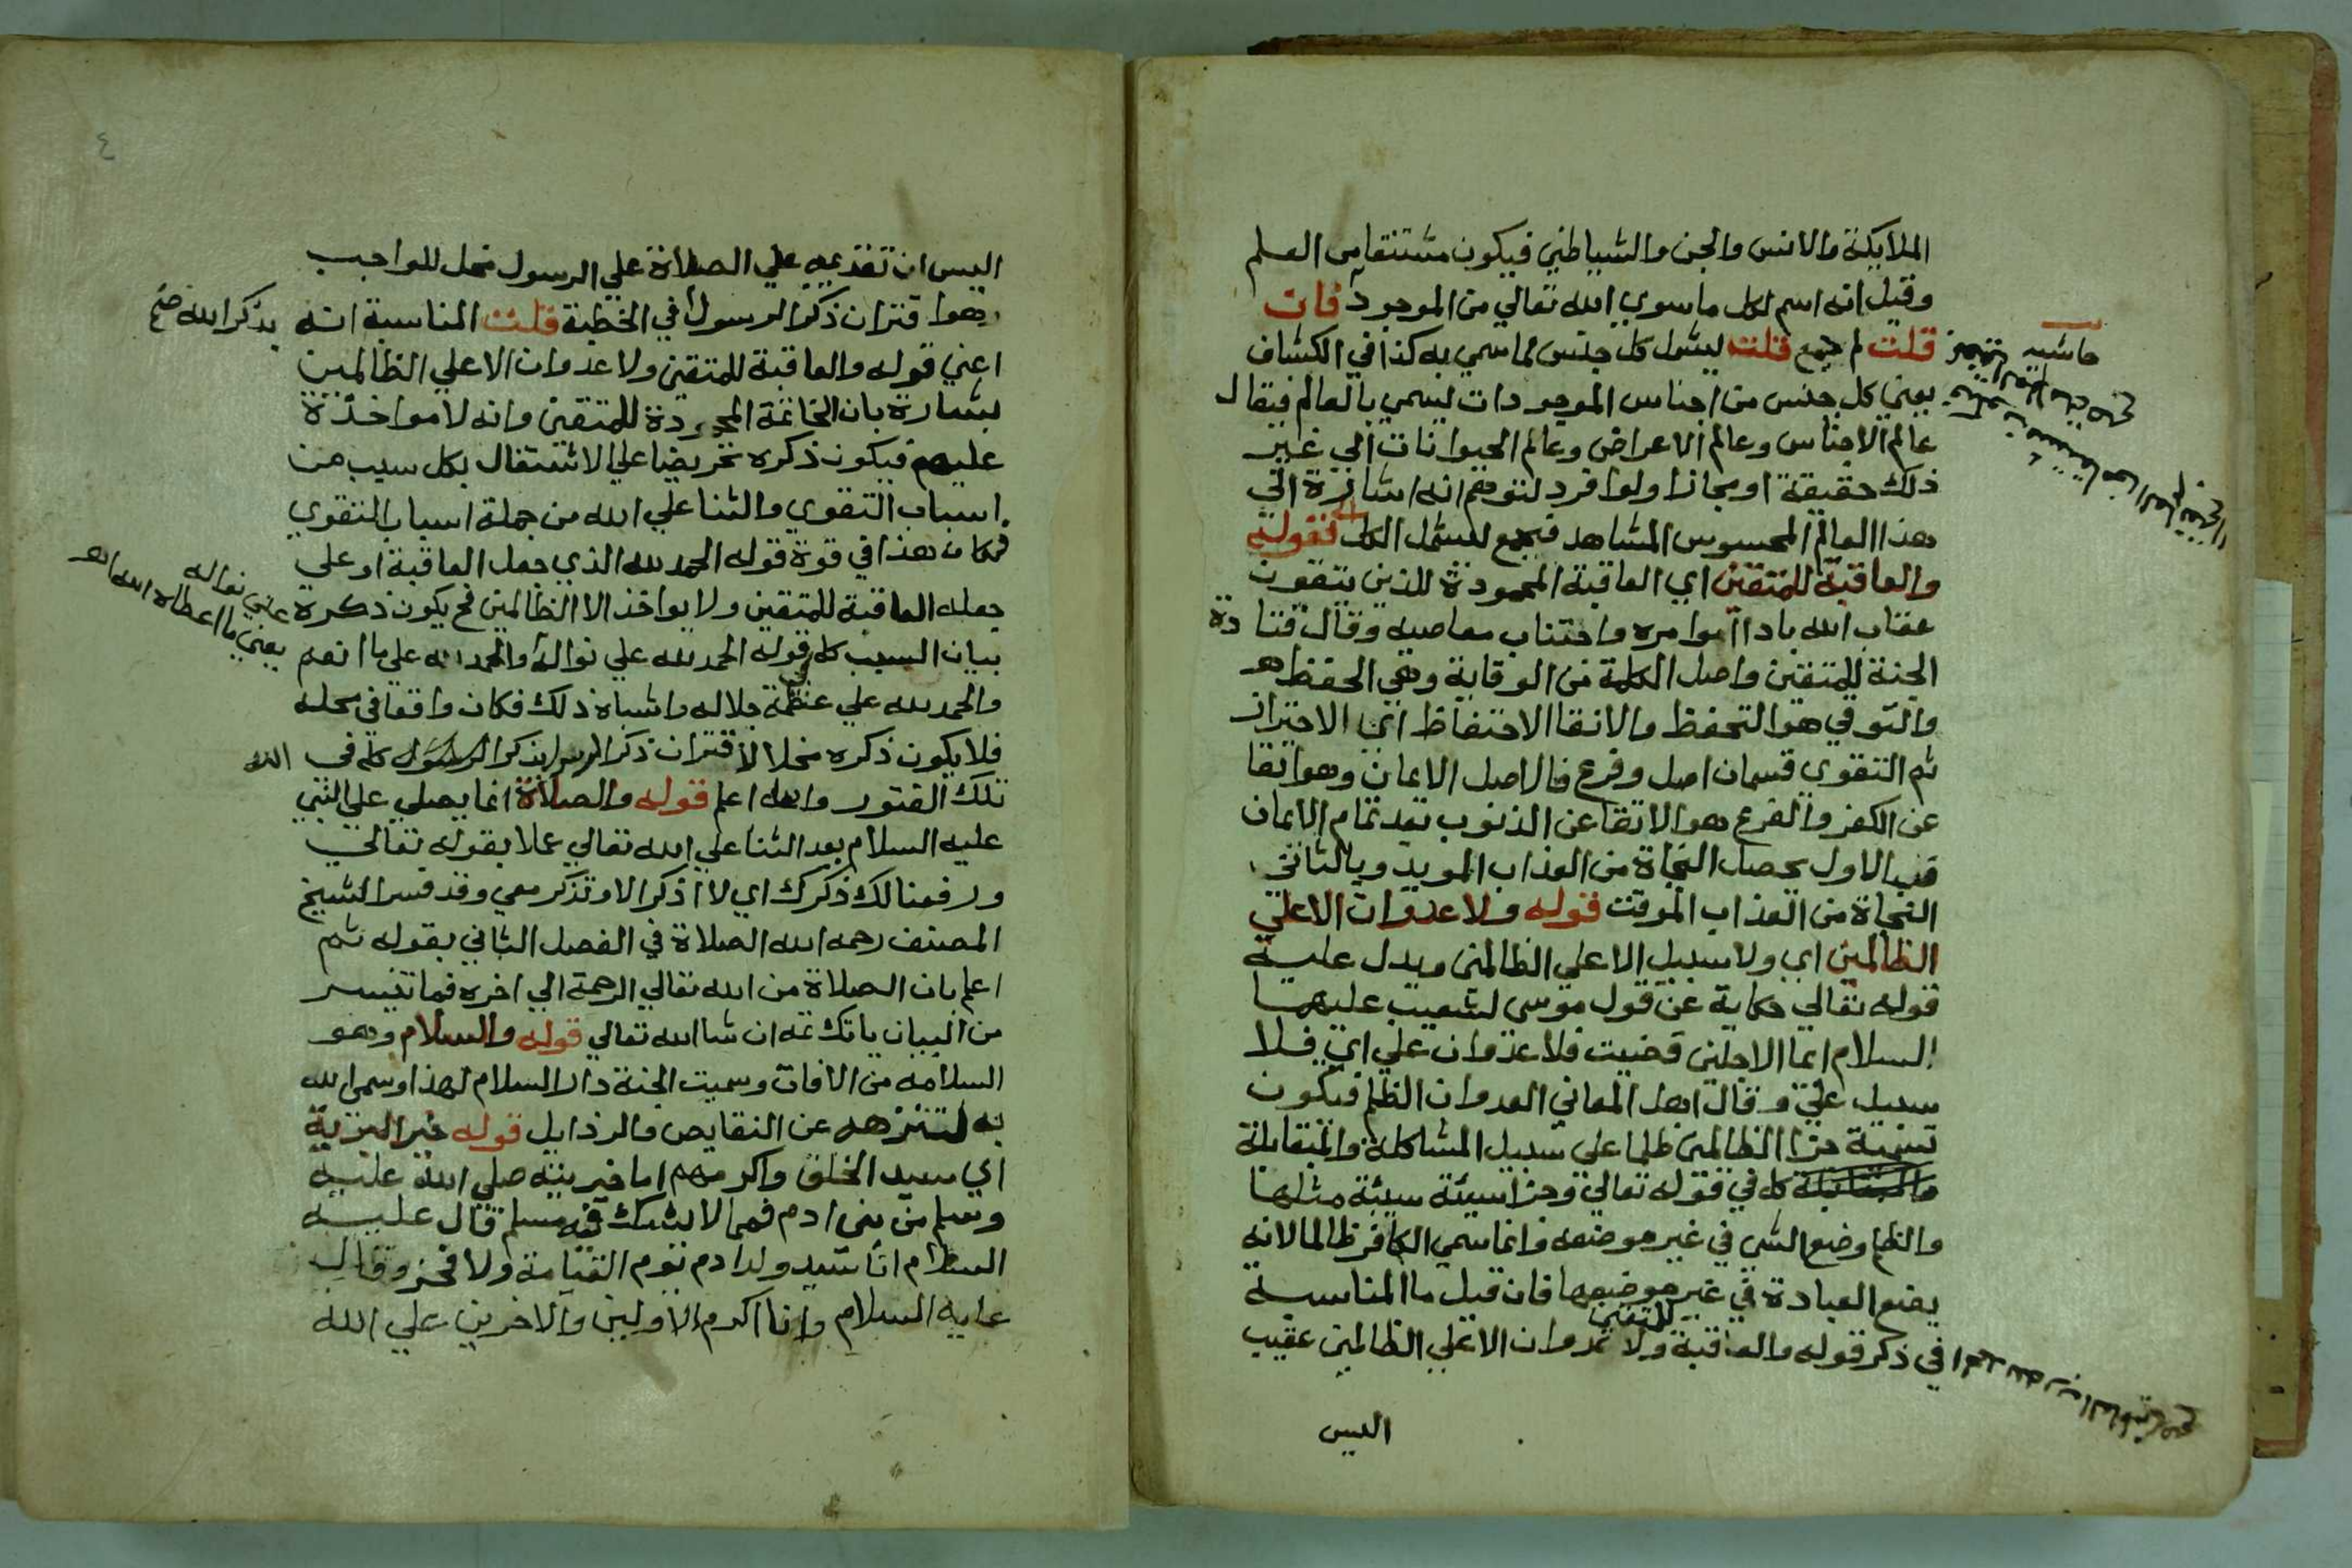 الملايكة والانس والجن والشياطين فيكون مشتقا من العلم
وقيل انه اسم لكل ما سوي الله تعالي من الموجود فان
قلت لم جمع قلت ليشمل كل جنس مما سمي به كذا في الكشاف
يعني كل جنس من اجناس الموجودات ليسمي بالعالم فيقال
عالم الاجناس وعالم الاعراض وعالم الحيوانات الي غير
ذلك حقيقة او مجازا ولو افرد لتوهم انه اشارة الي
هذا العالم المحسوس المشاهد فجمع ليشمل الكل فقوله
والعاقبة للمتقين اي العاقبة المحمودة للذين يتقون
عقاب الله باداآ اوامره واجتناب معاصيه وقال قتادة
الجنة للمتقين واصل الكلمة من الوقاية وهي الحفظ
والتوقي هو التحفظ والاتقا الاحتفاظ اي الاحتراز
ثم التقوي قسمان اصل وفرع فالاصل الايمان وهو اتقا
عن الكفر والفرع هو الاتقا عن الذنوب بعد تمام الايمان
فبالاول يحصل النجاة من العذاب المويد وبالثاني
النجاة من العذاب الموقت قوله ولا عدوان الا علي
الظالمين اي ولا سبيل الا علي الظالمين ويدل عليه
قوله تعالي حكاية عن قول موسي لشعيب عليهما
السلام ايما الاجلين قضيت فلا عدوان علي اي فلا
سبيل علي وقال اهل المعاني العدوان الظلم فيكون
تسمية جزا الظالمين ظلما علي سبيل المشاكلة والمقابلة
كما في قوله تعالي وجزا سيئة سيئة مثلها
والظلم وضع الشي في غير موضعه وانما سمي الكافر ظالما لانه
يضع العبادة في غير موضعها فان قيل ما المناسبة
في ذكر قوله والعاقبة للمتقين ولا عدوان الا علي الظالمين عقيب
الحمد لله رب العالمين صح
اليس
حاشيه
٤
اليس ان تقديمه علي الصلاة علي الرسول مخل للواجب
وهو اقتران ذكر الرسول في الخطبة قلت المناسبة انه
بذكر الله صح
اعني قوله والعاقبة للمتقين ولا عدوان الا علي الظالمين
بشارة بان الخاتمة المحمودة للمتقين وانه لا مواخذة
عليهم فيكون ذكره تحريضا علي الاشتغال بكل سبب من
اسباب التقوي والثنا علي الله من جملة اسباب التقوي
فكان هذا في قوة قوله الحمد لله الذي جعل العاقبة او علي
جعله العاقبة للمتقين ولا يواخذ الا الظالمين فح يكون ذكره
بيان السبب كما في قوله الحمد لله علي نواله والحمد لله علي ما انعم
علي نواله يعني ما اعطاه الله
والحمد لله علي عظمة جلاله واشباه ذلك فكان واقعا في محله
فلا يكون ذكره مخلا لاقتران ذكر الرسول بذكر الله كما في
تلك الفتور والله اعلم قوله والصلاة انما يصلي علي النبي
عليه السلام بعد الثنا علي الله تعالي عملا بقوله تعالي
ورفعنا لك ذكرك اي لا اذكر الا وتذكر معي وقد فسر الشيخ
المصنف رحمه الله الصلاة في الفصل الثاني بقوله ثم
اعلم بان الصلاة من الله تعالي الرحمة الي اخره فما تيسر
من البيان ياتك ثمه ان شا الله تعالي قوله والسلام وهو
السلامه من الافات وسميت الجنة دار السلام لهذا وسمي الله
به لتنزهه عن النقايص والرذايل قوله خير البرية
اي سيد الخلق واكرمهم اما خيريته صلي الله عليه
وسلم من بني ادم فمما لا يشك فيه مسلم قال عليه
السلام انا سيد ولد ادم يوم القيامة ولا فخر وقال
عليه السلام وانا اكرم الاولين والاخرين علي الله